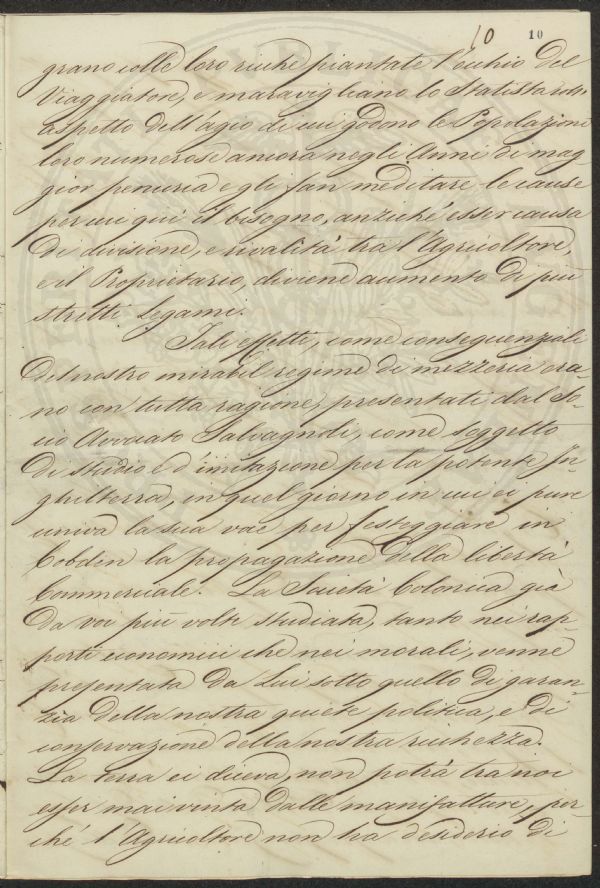 10 10
grano colle loro ricche piantate l'occhio del
Viaggiatore, e maravigliano lo Statista coll'
aspetto dell'agio di cui godono le Popolazioni
loro numerose ancora negli Anni di mag-
gior penuria e gli fan meditare le cause
per cui quì il bisogno, anzichè esser causa
di divisione, e rivalità tra l'Agricoltore,
e il Proprietario, diviene aumento di più
stretti legami.
Tali effetti, come conseguenziali
del nostro mirabil regime di mezzeria era-
no con tutta ragione, presentati dal So-
cio Avvocato Salvagnoli, come soggetto
di studio e d'imitazione per la potente In-
ghilterra, in quel giorno in cui ei pure
univa la sua voce per festeggiare in
Cobden la propagazione della libertà
Commerciale. La Società Colonica già
da voi più volte studiata, tanto nei rap-
porti economici che nei morali, venne
presentata da Lui sotto quello di garan-
zia della nostra quiete politica, e di
conservazione della nostra ricchezza.
La terra ei diceva, non potrà tra noi
esser mai vinta dalle manifatture, per-
chè l'Agricoltore non ha desiderio di